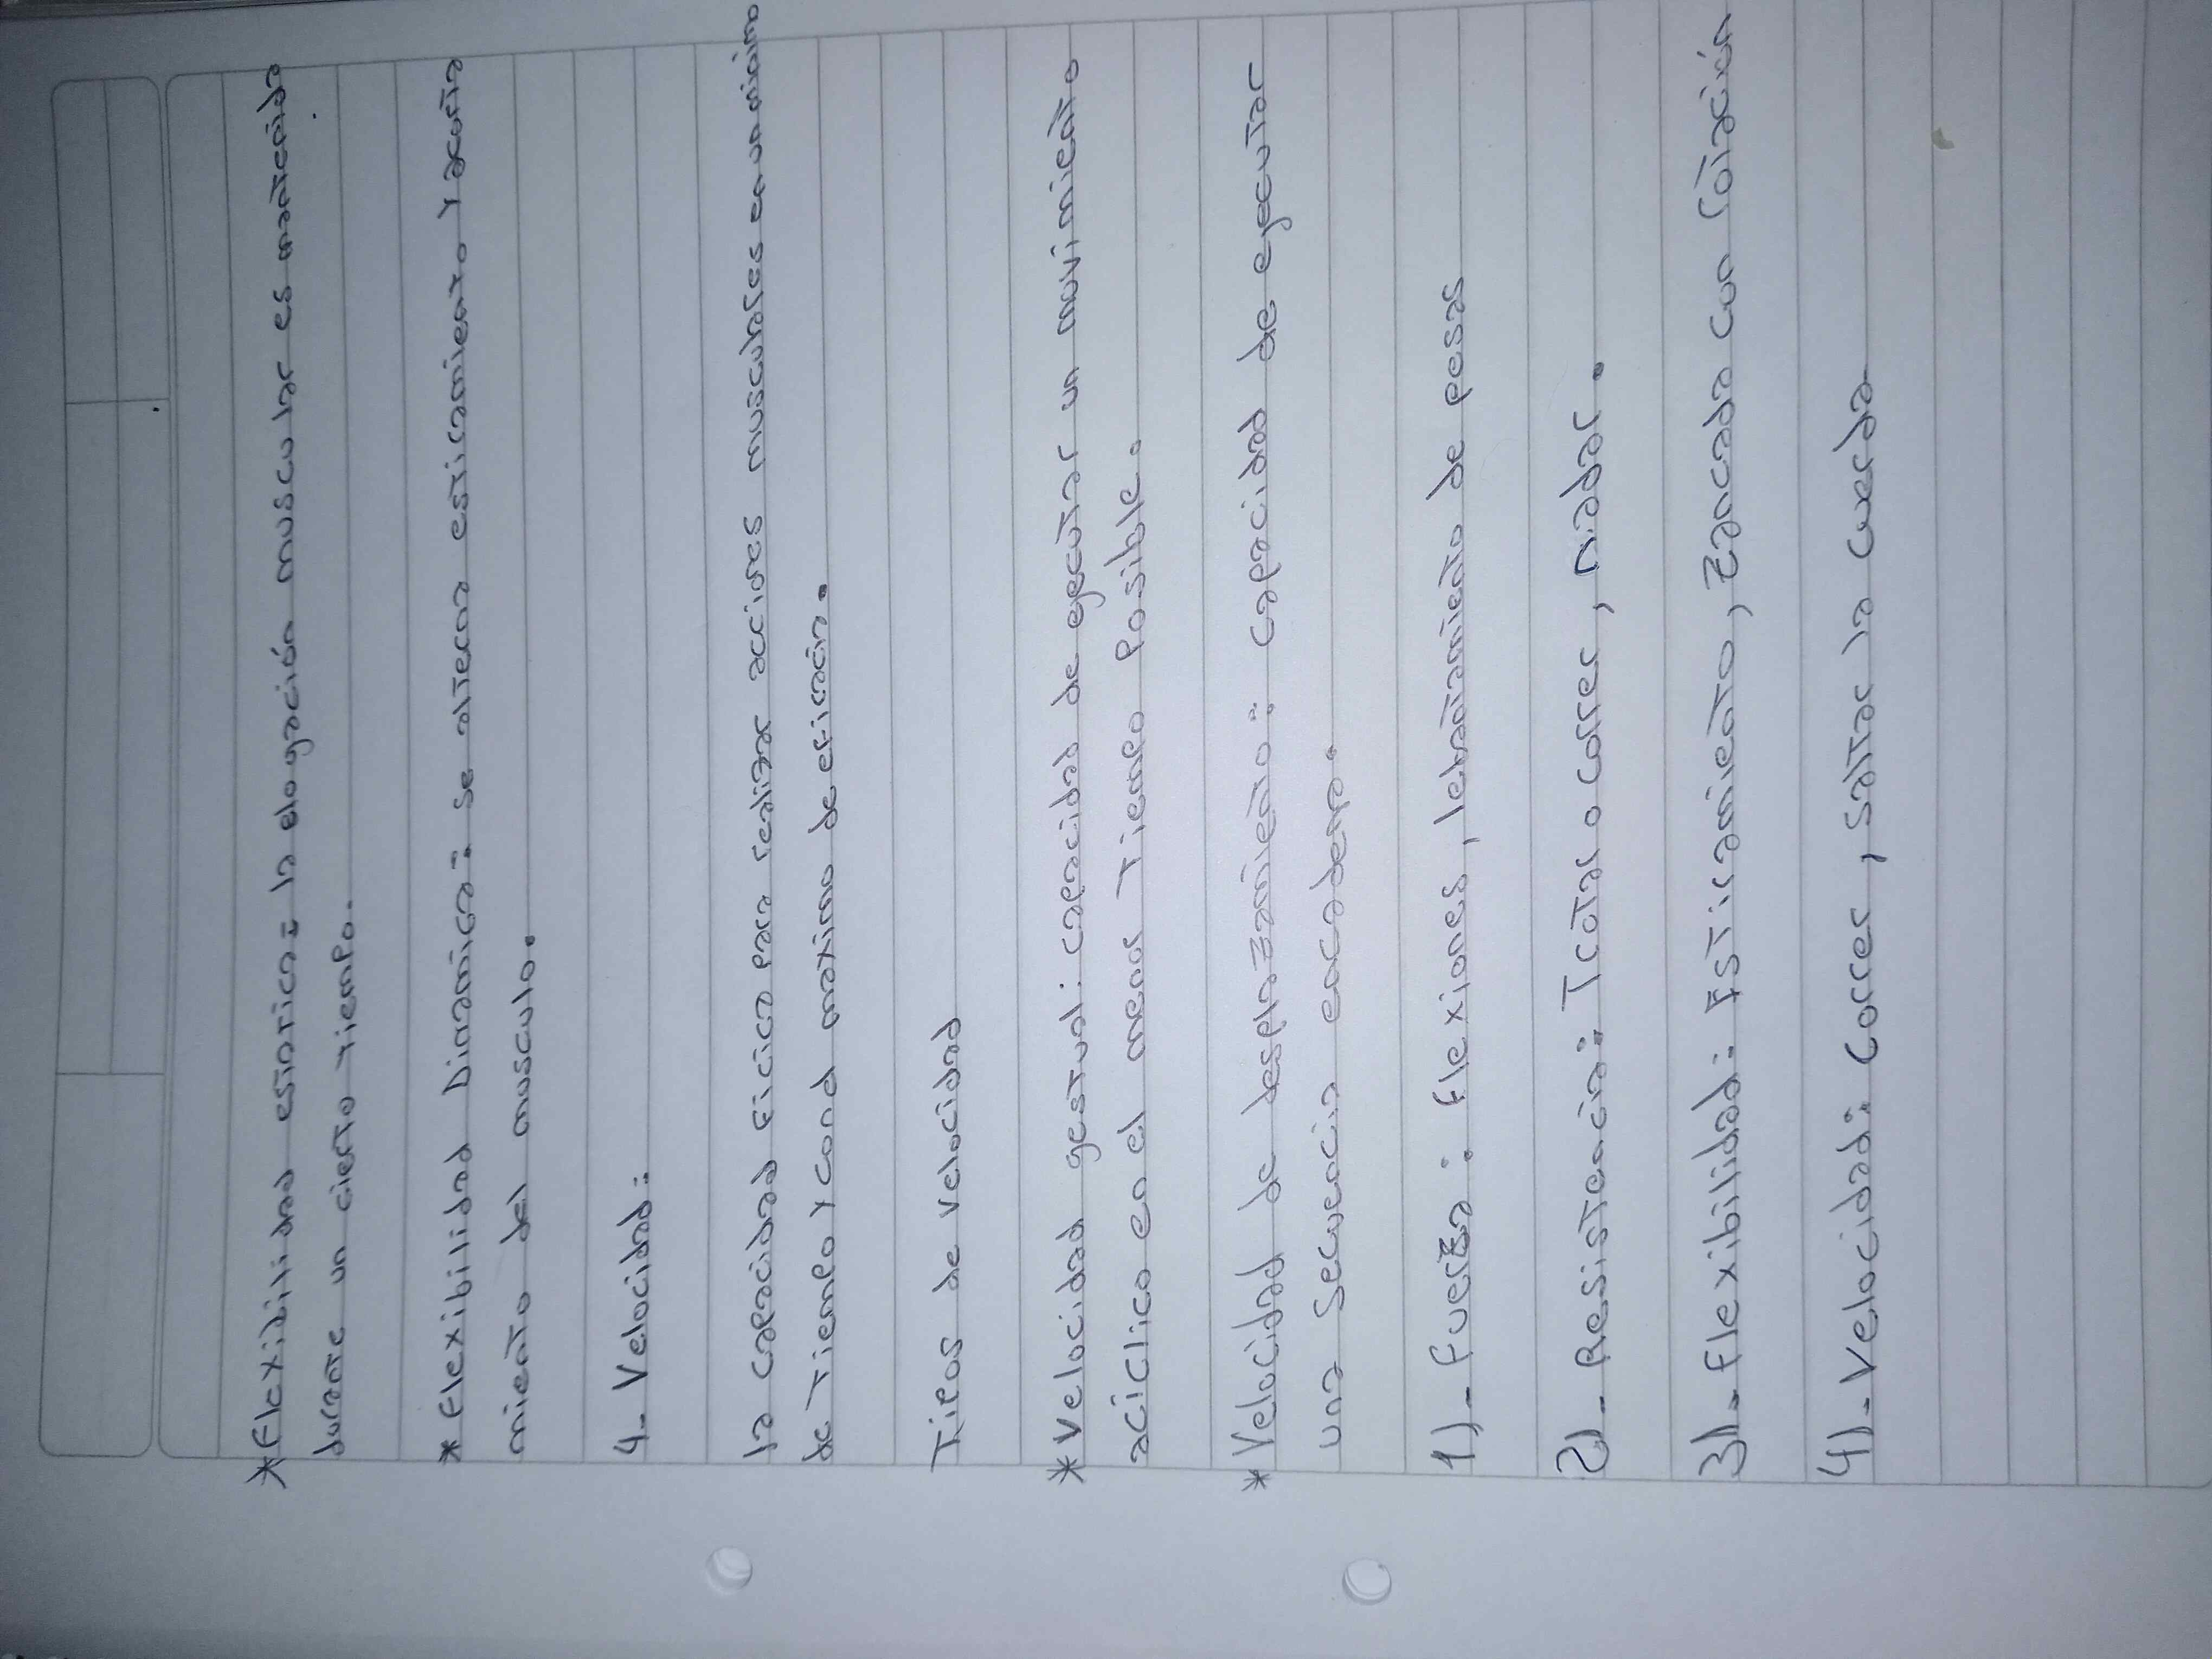 *Flexibilidad estatica: la elogación muscular es mantenida
durante un cierto tiempo.
*Flexibilidad Dinamica: se alterna estiramiento y acorta
miento del musculo.
4- Velocidad:
la capacidad ficica para realizar acciones musculares en un minimo
de tiempo y con el maximo de eficacia.
Tipos de velocidad
*Velocidad gestual: capacidad de ejecutar un movimiento
aciclico en el menor tiempo posible.
*Velocidad de desplazamiento: capacidad de ejecutar
una secuencia
1)- fuerza: flexiones, lebantamiento de pesas
2)- Resistencia: Trotar o correr, nadar.
3)- flexibilidad: Estiramiento, zancada con rotación
4)- Velocidad: Correr, saltar la cuerda